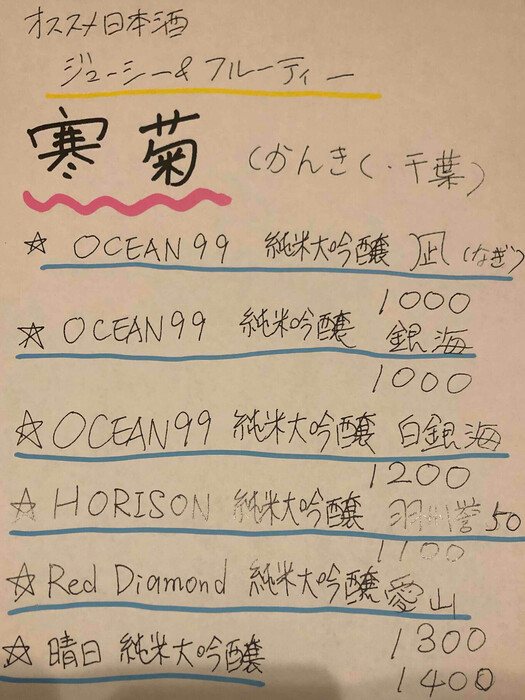 オススメ日本酒
ジューシー&フルーティー
寒菊 (かんきく・千葉)
☆ OCEAN99 純米大吟醸 凪(なぎ)
1000
☆ OCEAN99 純米吟醸 銀海
1000
☆ OCEAN99 純米大吟醸 白銀海
1200
☆ HORISON 純米大吟醸 羽州誉50
1100
☆ Red Diamond 純米大吟醸 愛山
1300
☆ 晴日 純米大吟醸
1400